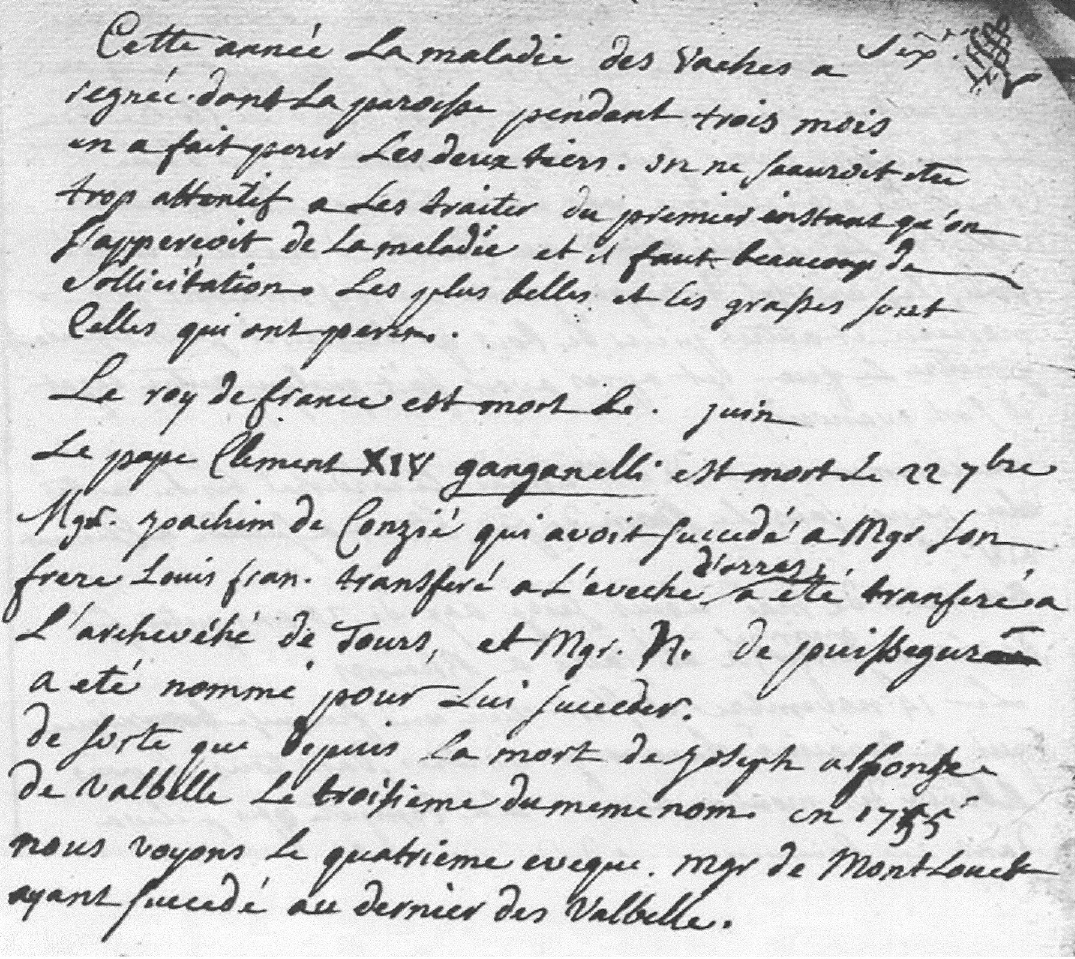 Cette année La maladie des Vaches a
regnée dans La paroisse pendant trois mois
en a fait perir Les deux tiers. on ne scauroit etre
trop attentif a Les traiter du premier instant qu'on
s'apperçoit de La maladie et il faut beaucoup de
sollicitation. Les plus belles et les grasses sont
Celles qui ont peries.
Le roy de france est mort Le . juin
Le pape Clement XIV ganganelli est mort Le 22 7bre
Mgr. joachim de Conzié qui avoit succedé a Mgr son
frere Louis fran. transferé a L'eveché d'arras, a eté transferé a
L'archevéhé de Tours, et Mgr. N. de puissegur
a eté nommé pour Lui succeder.
de sorte que depuis La mort de joseph alphonse
de Valbelle Le troisieme du meme nom en 1755
nous voyons Le quatrieme eveque. mgr de MontLouet
ayant succedé au dernier des Valbelle.